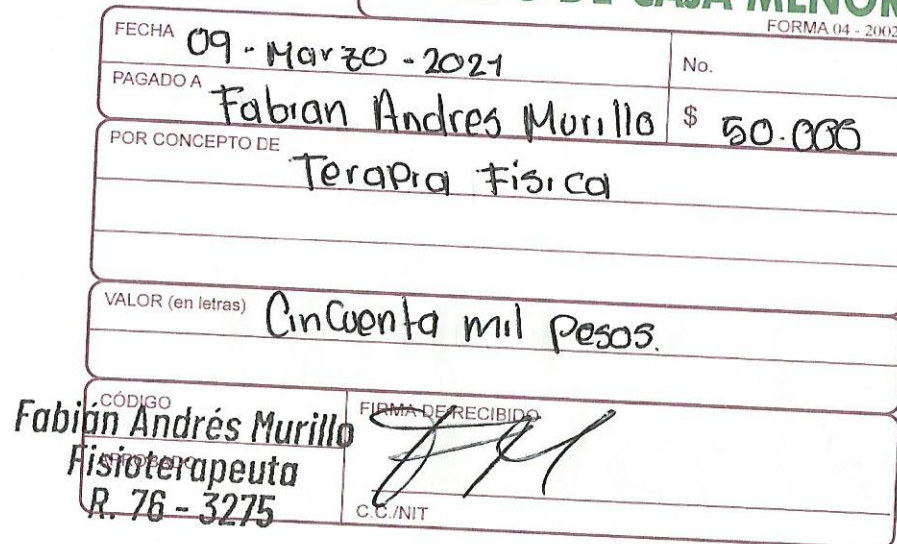 DE CAJA MENOR
FORMA 04 - 2002
FECHA 09 - Marzo - 2021
No.
PAGADO A Fabian Andres Murillo $ 50.000
POR CONCEPTO DE Terapia Fisica
VALOR (en letras) Cincuenta mil pesos.
CÓDIGO
FIRMA DE RECIBIDO
Fabián Andrés Murillo
APROBADO
Fisioterapeuta
R. 76 - 3275
C.C./NIT